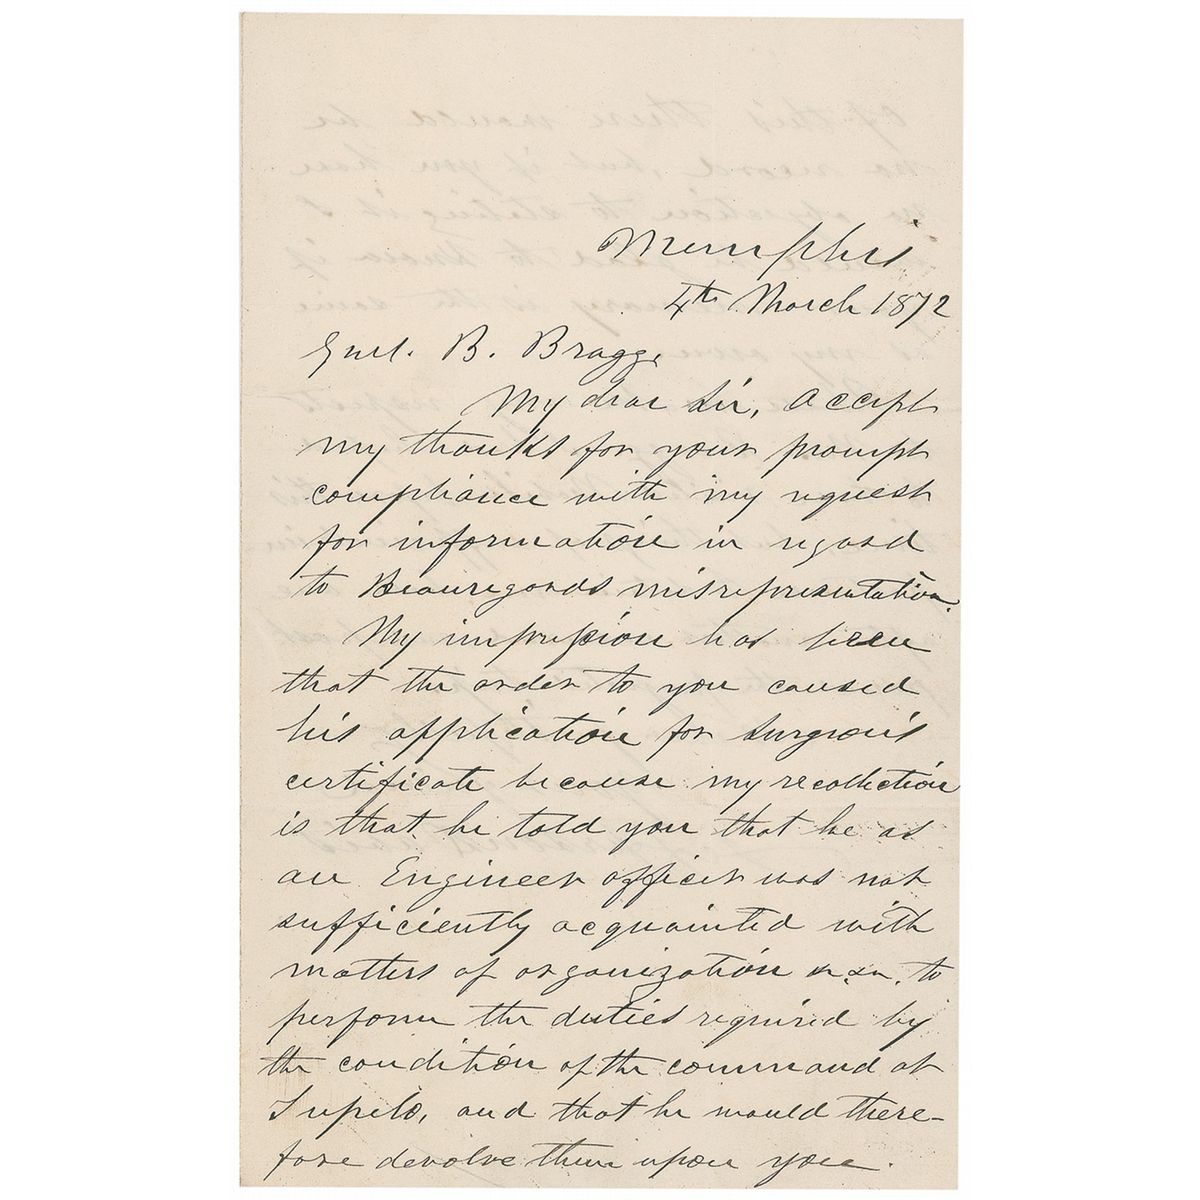 Memphis.
4th March 1872
Genl. B. Bragg,
My dear Sir, Accept
my thanks for your prompt
compliance with my request
for information in regard
to Beauregards misrepresentation.
My impression has been
that the order to you caused
his application for Surgeon's
certificate because my recollection
is that he told you that he as
an Engineer officer was not
sufficiently acquainted with
matters of organization &c. &c. to
perform the duties required by
the condition of the command at
Tupelo, and that he would there-
fore devolve them upon you.